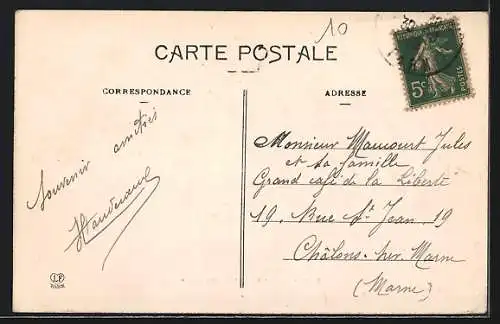 10
CARTE POSTALE
CORRESPONDANCE
ADRESSE
5c
POSTES
Souvenir amitiés
Monsieur Maucourt Jules
et sa famille
Grand café de la Liberté
19. Rue St Jean. 19
Châlons-sur-Marne
(Marne)
LF